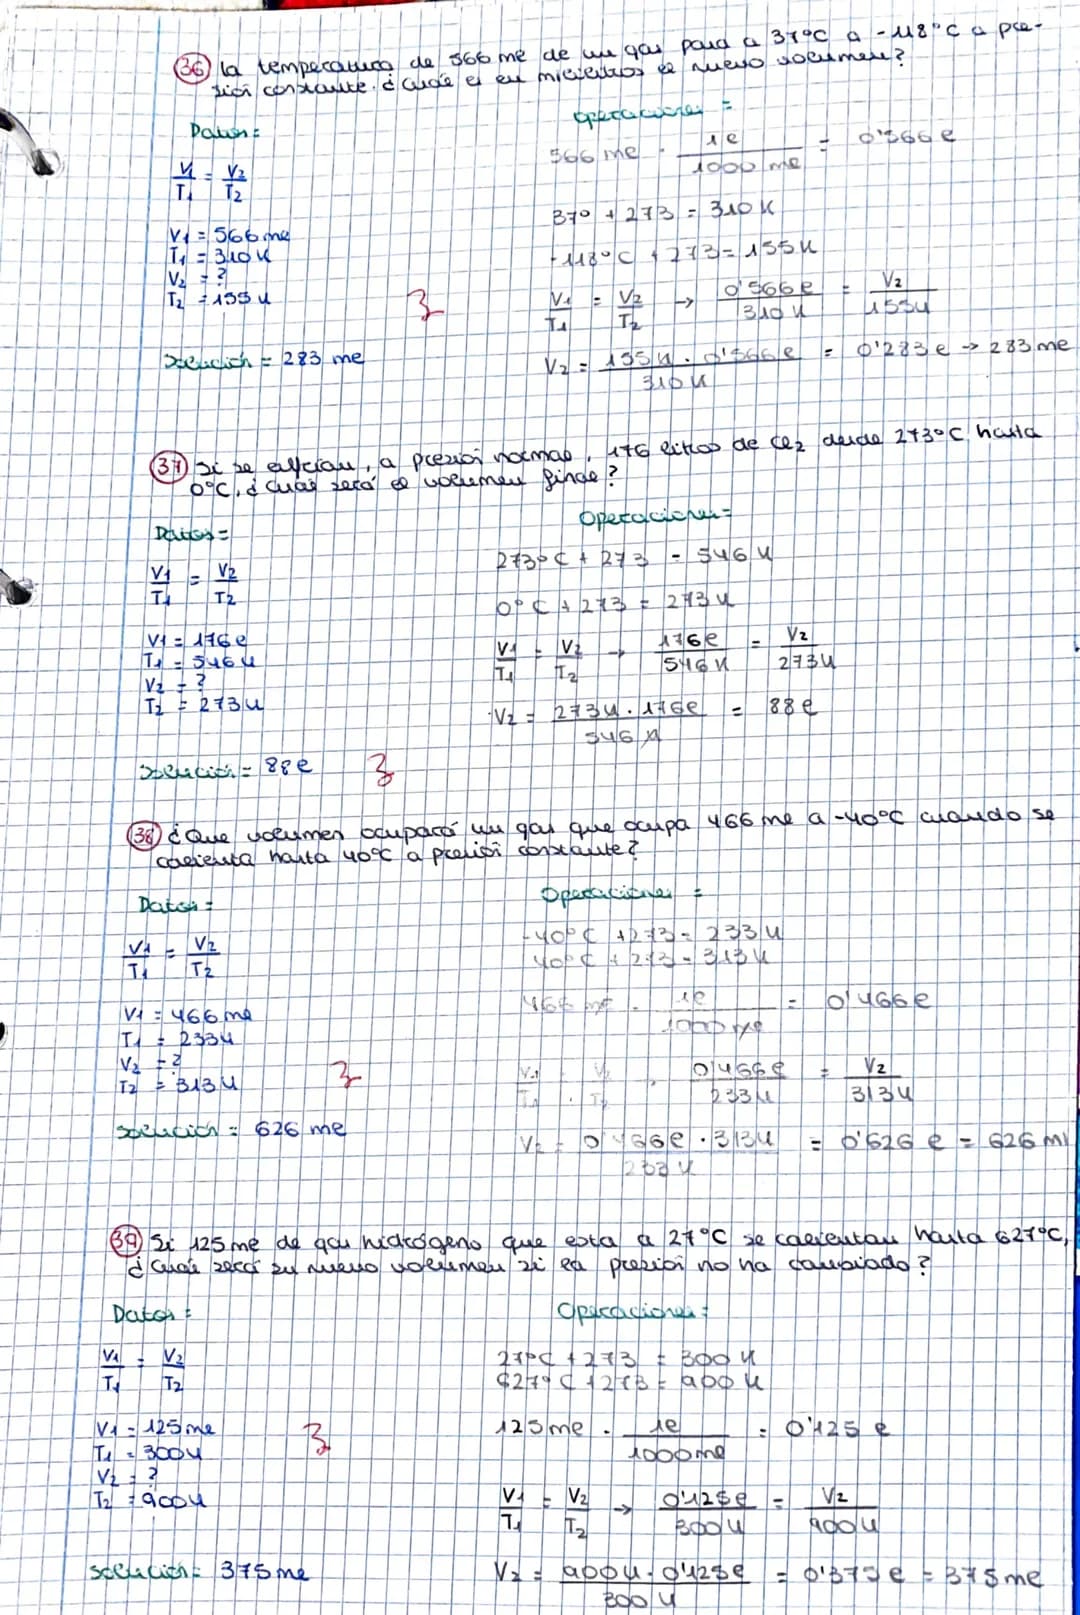 36 La temperatura de 566 ml de un gas pasa a 37°C a -118°C a pre-
sión constante. ¿Cuál es en mililitros el nuevo volumen?
Datos =
V1/T1 = V2/T2
V1 = 566 ml
T1 = 310 K
V2 = ?
T2 = 155 K
Solución = 283 ml
3
Operaciones =
566 ml · 1l/1000 ml = 0'566 l
37° + 273 = 310 K
-118°C + 273 = 155 K
V1/T1 = V2/T2 → 0'566 l/310 K = V2/155 K
V2 = 155 K · 0'566 l/310 K = 0'283 l → 283 ml
37 Si se enfrían, a presión normal, 176 litros de Cl2 desde 273°C hasta
0°C, ¿Cuál será el volumen final?
Datos =
V1/T1 = V2/T2
V1 = 176 l
T1 = 546 K
V2 = ?
T2 = 273 K
Solución = 88 l
3
Operaciones =
273°C + 273 = 546 K
0°C + 273 = 273 K
V1/T1 = V2/T2 → 176 l/546 K = V2/273 K
V2 = 273 K · 176 l/546 K = 88 l
38 ¿Que volumen ocupará un gas que ocupa 466 ml a -40°C cuando se
calienta hasta 40°C a presión constante?
Datos =
V1/T1 = V2/T2
V1 = 466 ml
T1 = 233 K
V2 = ?
T2 = 313 K
Solución = 626 ml
3
Operaciones =
-40°C + 273 = 233 K
40°C + 273 = 313 K
466 ml · 1l/1000 ml = 0'466 l
V1/T1 = V2/T2 → 0'466 l/233 K = V2/313 K
V2 = 0'466 l · 313 K/233 K = 0'626 l = 626 ml
39 Si 125 ml de gas hidrógeno que esta a 27°C se calientan hasta 627°C,
¿Cuál será su nuevo volumen si la presión no ha cambiado?
Datos =
V1/T1 = V2/T2
V1 = 125 ml
T1 = 300 K
V2 = ?
T2 = 900 K
Solución = 375 ml
3
Operaciones =
27°C + 273 = 300 K
627°C + 273 = 900 K
125 ml · 1l/1000 ml = 0'125 l
V1/T1 = V2/T2 → 0'125 l/300 K = V2/900 K
V2 = 900 K · 0'125 l/300 K = 0'375 l = 375 ml